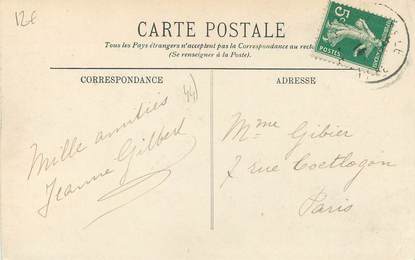 12€
CARTE POSTALE
Tous les Pays étrangers n'acceptent pas la Correspondance au recto
(Se renseigner à la Poste).
CORRESPONDANCE
ADRESSE
44)
Mille amitiés
Jeanne Gilbert
Mme Gibier
7 rue Coetlogon
Paris
5c